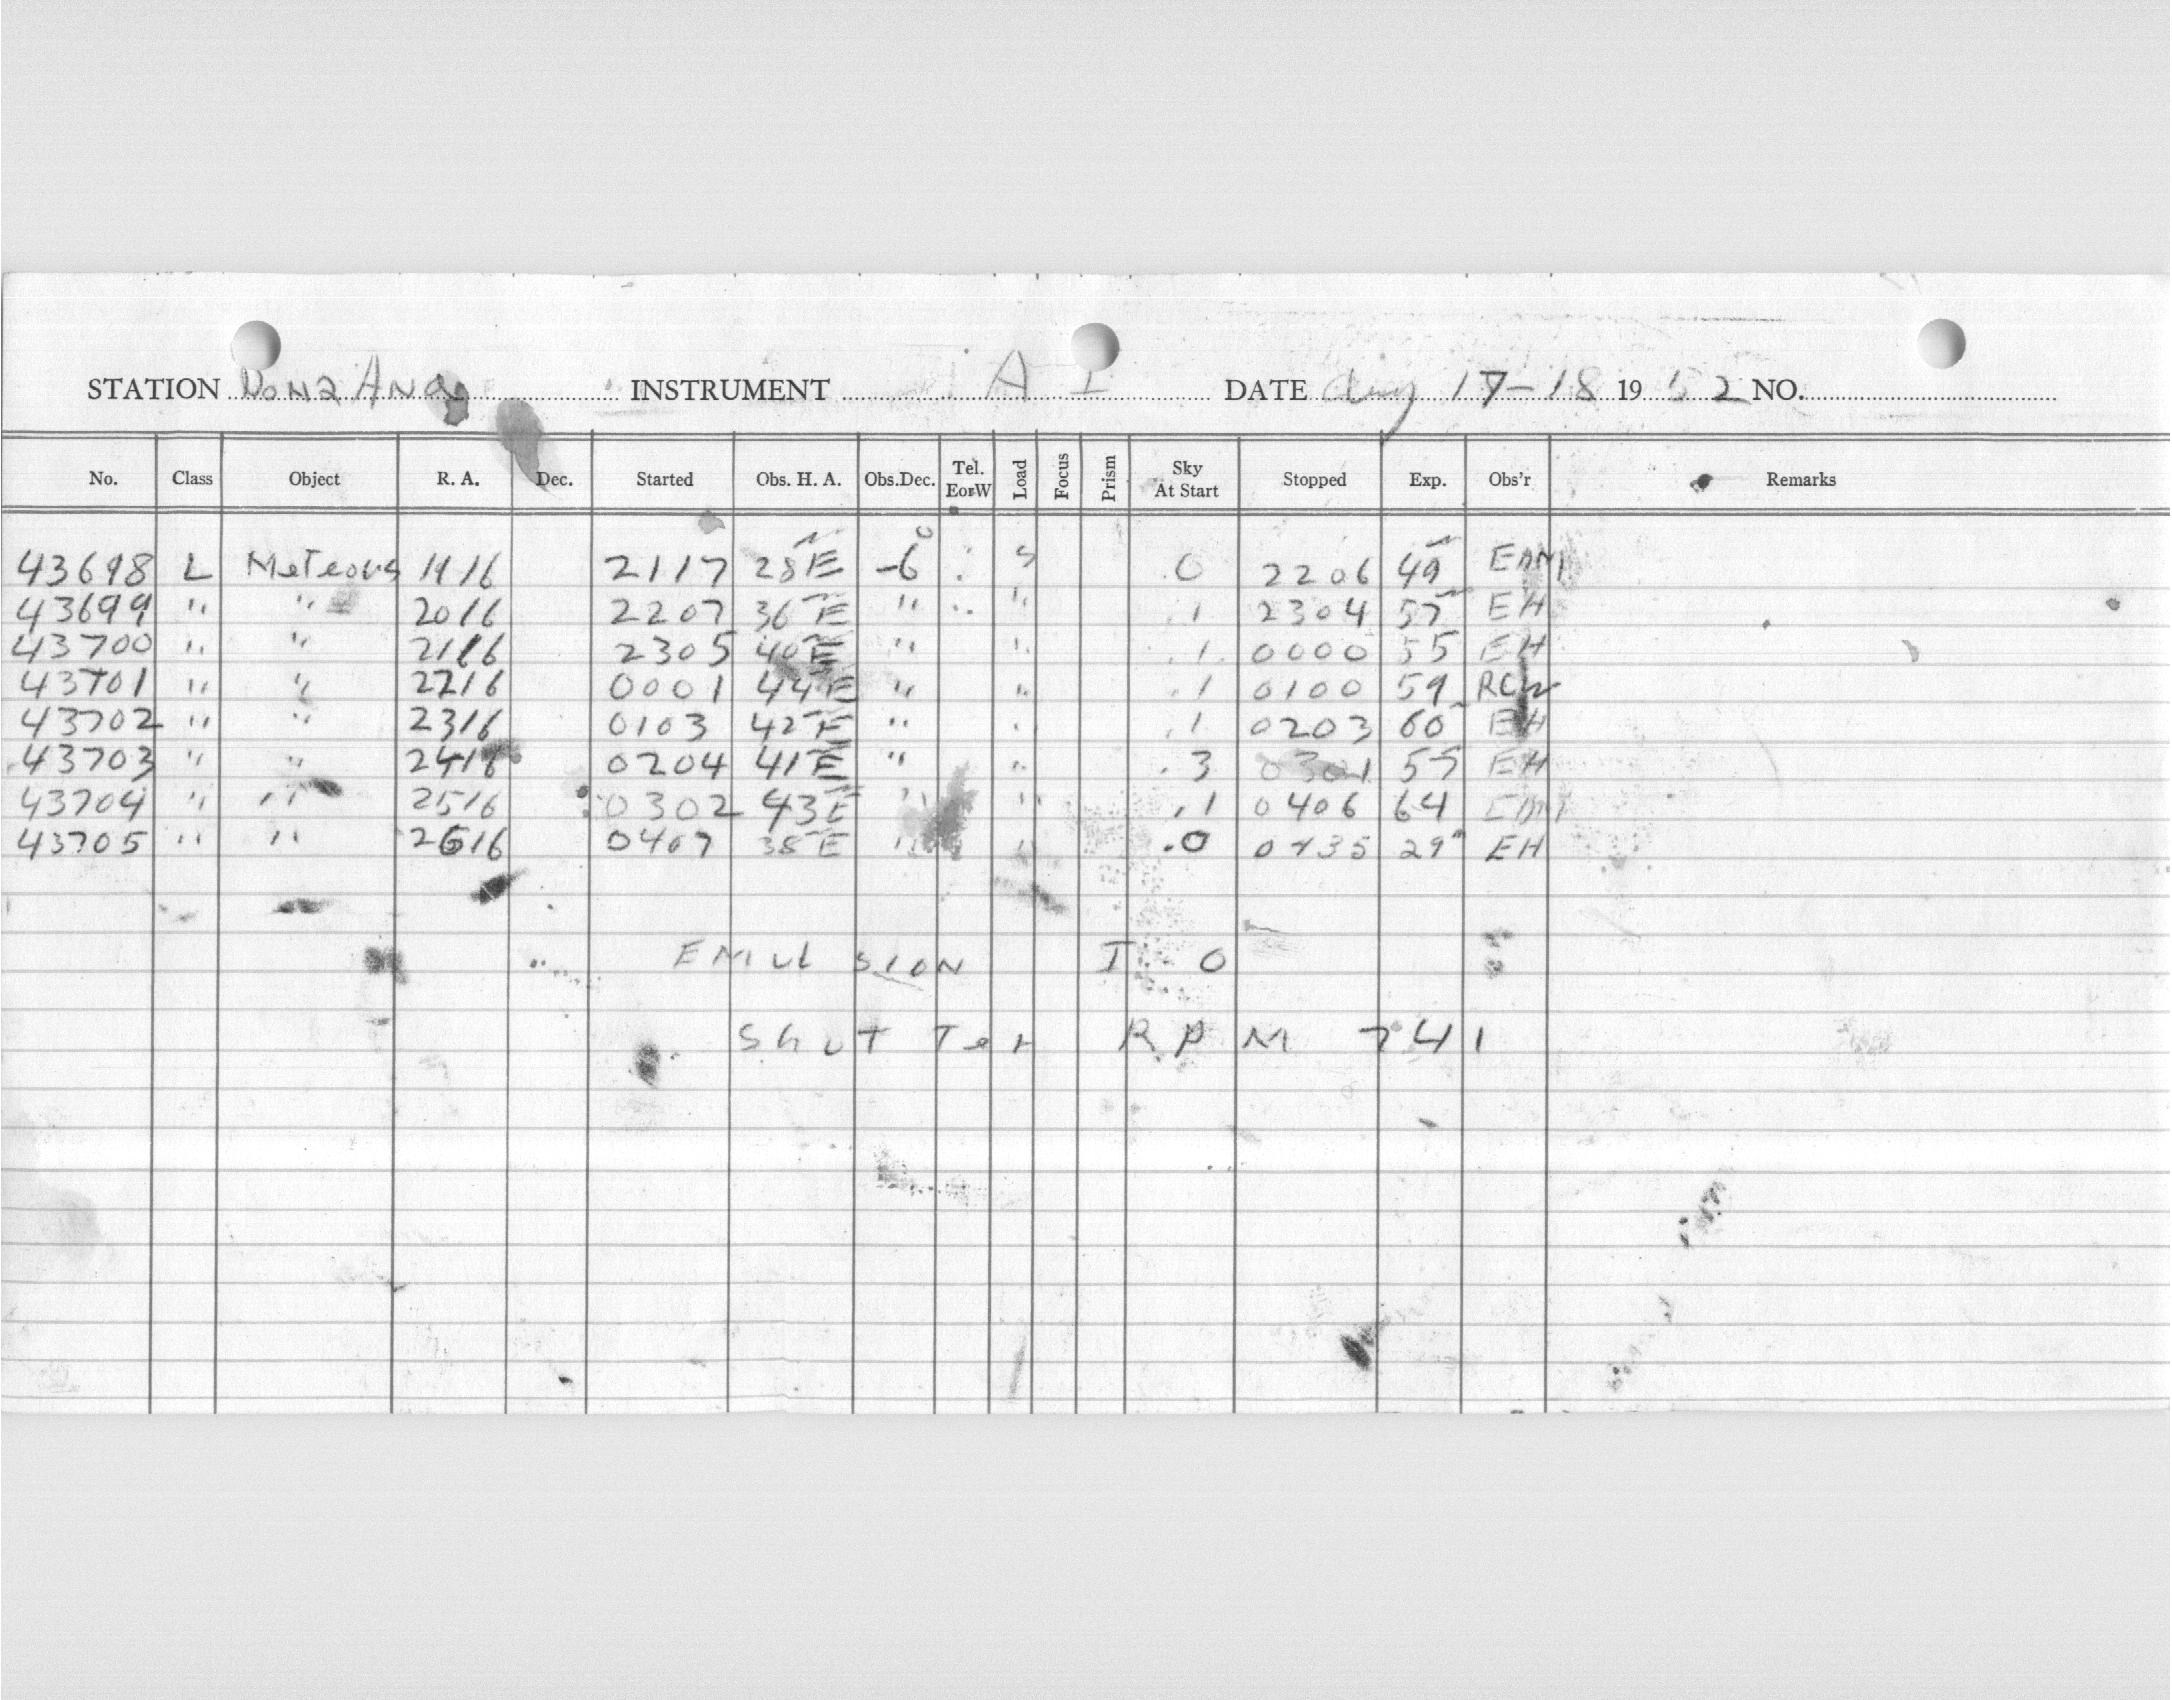 STATION Dona Ana INSTRUMENT A I DATE Aug 17-18 1952 NO.
No. Class Object R. A. Dec. Started Obs. H. A. Obs.Dec. Tel. EorW Load Focus Prism Sky At Start Stopped Exp. Obs'r Remarks
43698 L Meteors 1916 2117 28ᵐE -6° S 0 2206 49ᵐ EAM
43699 " " 2016 2207 36ᵐE " " .1 2304 57ᵐ EH
43700 " " 2116 2305 40ᵐE " " .1 0000 55 EH
43701 " " 2216 0001 44ᵐE " " .1 0100 59 RCW
43702 " " 2316 0103 42ᵐE " " .1 0203 60ᵐ EH
43703 " " 2416 0204 41ᵐE " " .3 0301 57 EH
43704 " " 2516 0302 43ᵐE " " .1 0406 64
43705 " " 2616 0407 38ᵐE " " .0 0435 29ᵐ EH
EMULSION I O
ShuTTer RPM 741